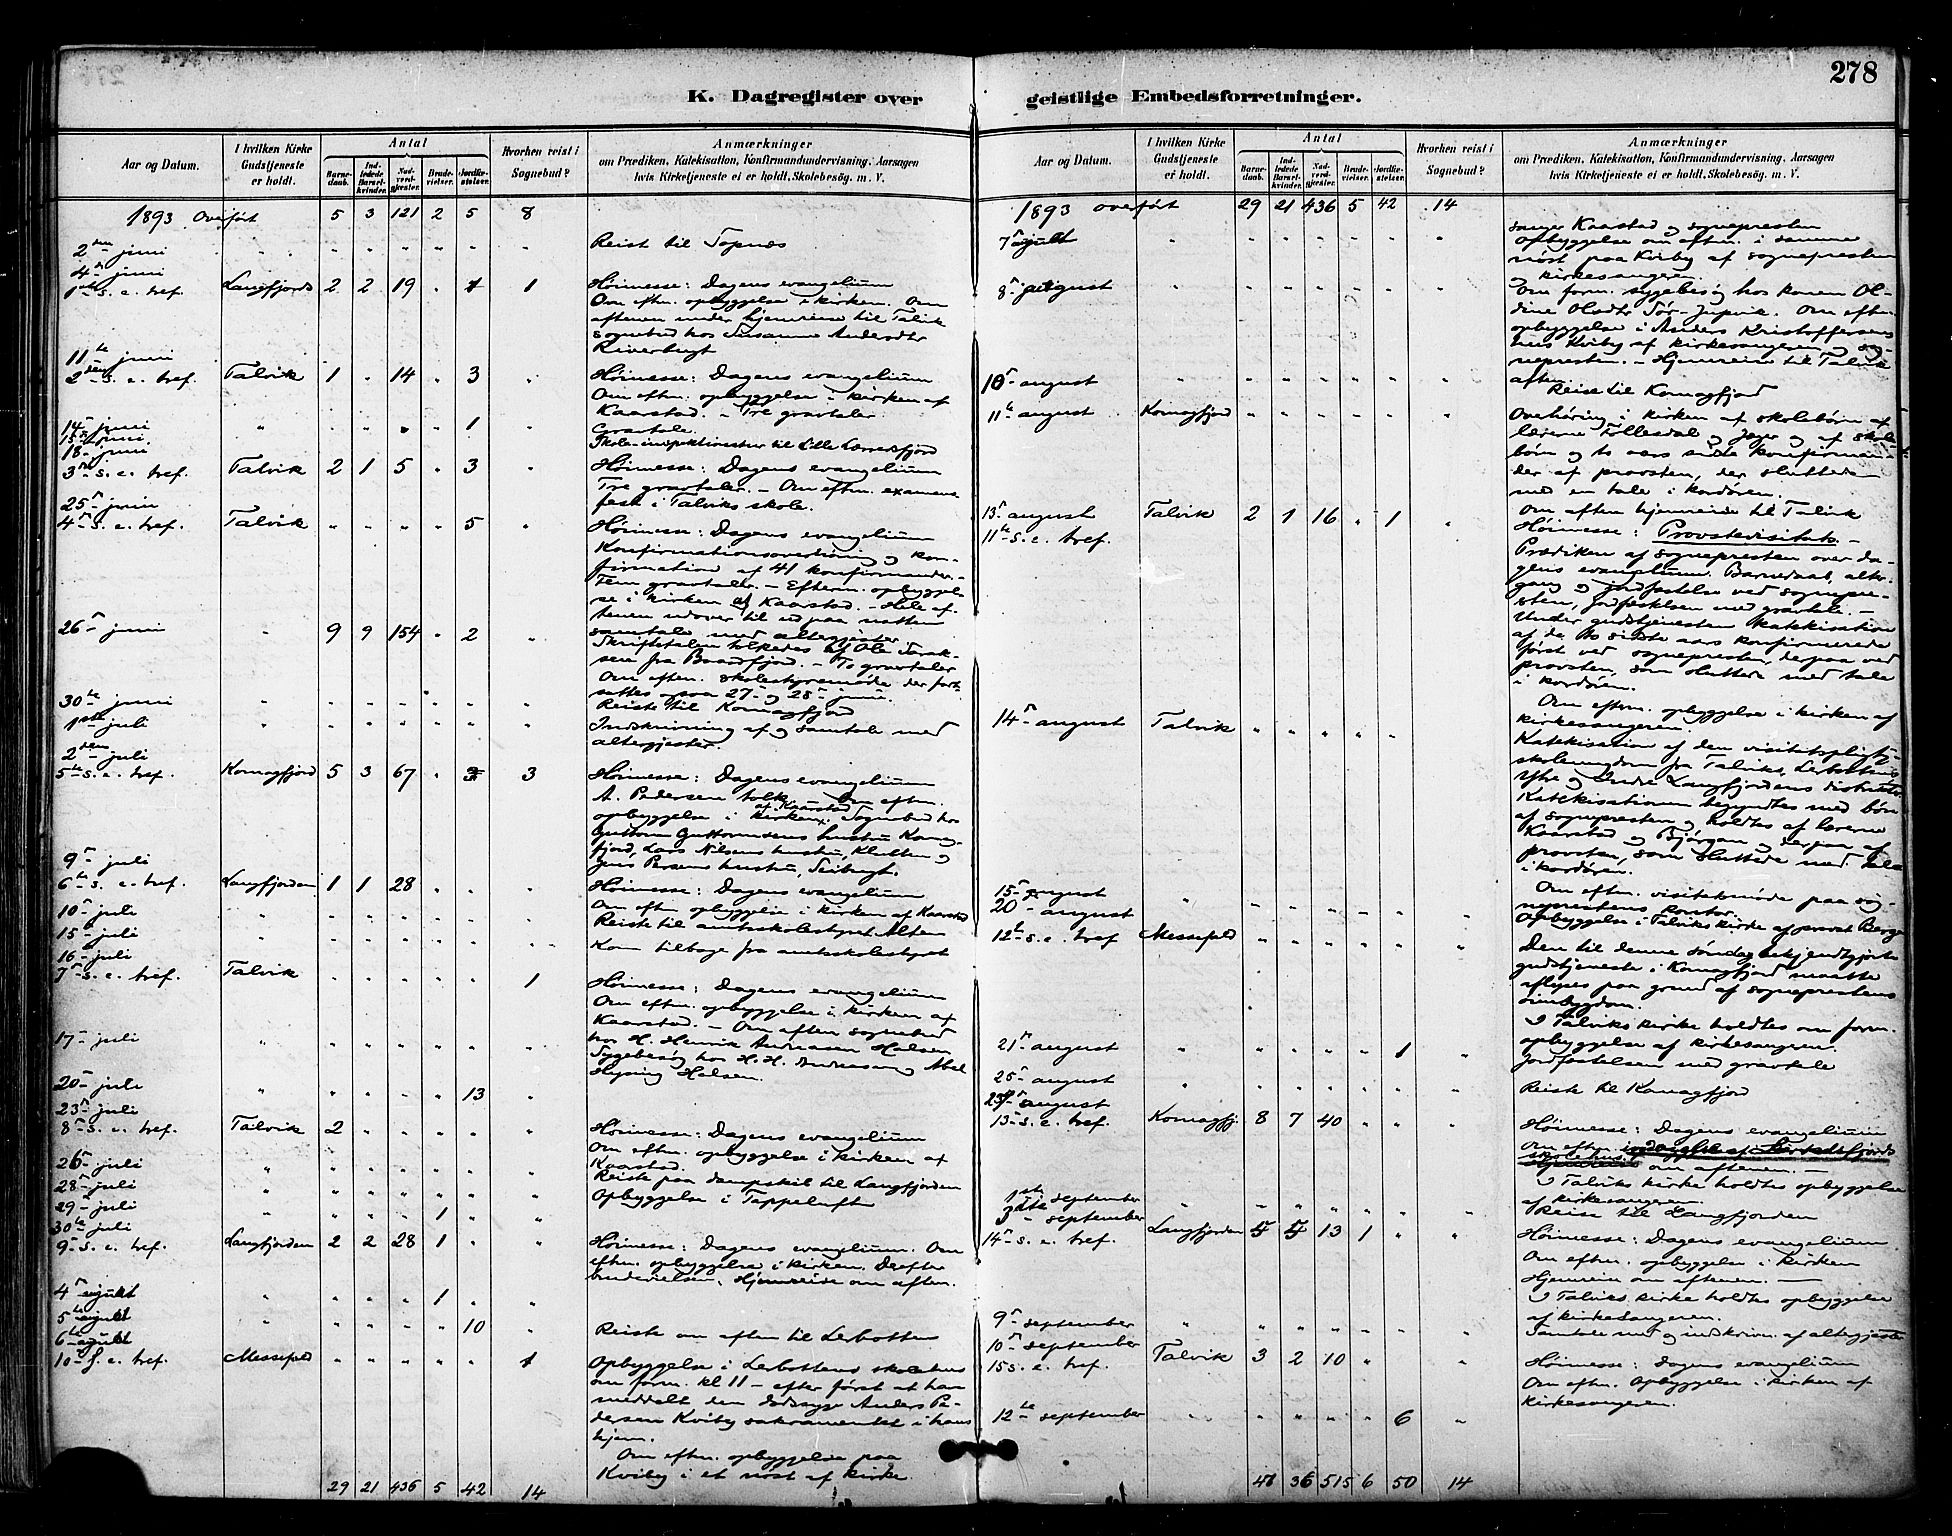 278
K. Dagregister over
geistlige Embedsforretninger.
Aar og Datum.
I hvilken Kirke Gudstjeneste er holdt.
Antal
Barnedaab.
Indledede Barselkvinder.
Nadverdgjester.
Brudevielser.
Jordfæstelser.
Hvorhen reist i Sognebud?
Anmærkninger
om Prædiken, Katekisation, Konfirmandundervisning, Aarsagen
hvis Kirketjeneste ei er holdt, Skolebesøg. m. V.
1893 Overført 5 3 121 2 5 8
2den juni Reist til Topnæs
4de juni
1ste s. e. tref. Langfjord 2 2 19 1 Høimesse: Dagens evangelium
Om eftm. opbyggelse i kirken. Om
aftenen under hjemreise til Talvik
sognebud hos Susanne Andersdtr
Riverbugt
11te juni
2den s. e. tref. Talvik 1 " 14 " 3 Høimesse: Dagens evangelium
Om eftm. opbyggelse i kirken af
Kaarstad. – Tre gravtaler
14 juni 1 Gravtale.
15 juni Skole-inspektionstur til Lille Lerresfjord
18 juni
3die s. e. tref. Talvik 2 1 5 " 3 Høimesse: Dagens evangelium
Tre gravtaler. – Om eftm. examens
fest i Talviks skole.
25 juni
4de s. e. tref. Talvik " " " " 5 Høimesse: Dagens evangelium
Konfirmationsoverhøring og kon-
firmation af 41 konfirmander. –
Fem gravtaler. – Efterm. opbyggel-
se i kirken af Kaarstad. – Hele af-
tenen udover til ud paa natten
samtale med altergjester
26 juni 9 9 154 " 2 Skriftetalen tolkedes af Ole
sen fra . – To gravtaler
Om eftm. skolestyremøde der fort-
settes ogsaa 27 og 28 juni.
30te juni Reiste til Komagfjord
1ste juli Indskrivning af og samtale med
altergjester.
2den juli
5te s. e. tref. Komagfjord 5 3 67 " 3 Høimesse: Dagens evangelium
A. Pedersen tolk. Om eftm.
opbyggelse i kirken af Kaarstad. Sognebud hos
Guttorm Guttormsens hustru Komag-
fjord, Lars Nilsens hustru, Klubben og
Jens Persens hustru, Seibugt.
9 juli
6te s. e. tref. Langfjorden 1 1 28 Høimesse: Dagens evangelium
Om eftm. opbyggelse i kirken af Kaarstad
10 juli Reiste til amtsskolestyret Alten
15 juli Kom tilbage fra amtsskolestyret
16 juli
7 s. e. tref. Talvik 1 Høimesse: Dagens evangelium
Om eftm. opbyggelse i kirken af
Kaarstad. – Om aften sognebud
hos H. Henrik Andreasen Halsen
17 juli Sygebesøg hos H. H. Andreasen og Abel
Halsen.
20 juli 13
23 juli
8 s. e. tref. Talvik 2 Høimesse: Dagens evangelium
Om eftm. opbyggelse i kirken af
Kaarstad.
26 juli Reiste paa dampskib til Langfjorden
28 juli Opbyggelse i Tappeluft
29 juli 1
30te juli
9 s. e. tref. Langfjorden 2 2 28 1 Høimesse: Dagens evangelium. Om
eftm. opbyggelse i kirken. Derefter
brudevielsen. Hjemreise om aften.
4 august 1
5te august 10 Reiste om aften til Lerbotten
6te august
10 s. e. tref. Messefald 1 Opbyggelse i Lerbottens skolehus
om form. kl 11 – efter først at have
meddelt den dødssyge Anders Pe-
dersen Kviby sakramentet i hans
hjem.
Om eftm. opbyggelse paa
Kviby i et nøst af kirke
29 21 436 5 42 14
Aar og Datum.
I hvilken Kirke Gudstjeneste er holdt.
Antal
Barnedaab.
Indledede Barselkvinder.
Nadverdgjester.
Brudevielser.
Jordfæstelser.
Hvorhen reist i Sognebud?
Anmærkninger
om Prædiken, Katekisation, Konfirmandundervisning, Aarsagen
hvis Kirketjeneste ei er holdt, Skolebesøg. m. V.
1893 overført 29 21 436 5 42 14
sanger Kaarstad og sognepresten
7 august Opbyggelse om eftm. i samme
nøst paa Kviby af sognepresten
og kirkesangeren.
8 august Om form. sygebesøg hos konen Ol-
dine Olsdtr . Om eftm.
opbyggelse i Anders Kristoffersens
hus Kviby af kirkesangeren og sog-
nepresten. – Hjemreise til Talvik
aften.
10 august Reise til Komagfjord
11te august Komagfjord Overhøring i kirken af skolebørn af
lærerne Follesdal og og af skole-
børn og to aars sidste konfirman-
der af provsten, der sluttede
med en tale i kordøren.
Om aften hjemreise til Talvik
13 august Talvik 2 1 16 " 1
11te s. e. tref. Høimesse: Provstevisitats. –
Prædiken af sognepresten over da-
gens evangelium. Barnedaab, alter-
gang og jordfæstelse ved sognepre-
sten, jordfæstelsen med gravtale. –
Under gudstjenesten katekisation
af de to sidste aars konfirmerede
først ved sognepresten, derpaa ved
provsten, som sluttede med tale
i kordøren.
Om eftm. opbyggelse i kirken af
kirkesangeren.
14 august Talvik Katekisation af den visitatspligtige
skoleungdom fra Talviks, Lerbottens
Ytre og Indre Langfjordens distrikter
Katekisationen begyndtes med bøn
af sognepresten og holdtes af lærerne
Kaarstad og Bjørgan og derpaa af
provsten, som sluttede med tale
i kordøren.
15 august Om eftm. visitatsmøde paa sog-
neprestens kontor.
20 august Opbyggelse i Talviks kirke af provst Berge
12te s. e. tref Messefald Den til denne søndag bekjendtgjorte
gudstjeneste i Komagfjord maatte
aflyses paa grund af sogneprestens
sygdom.
I Talviks kirke holdtes om form.
opbyggelse af kirkesangeren.
21 august 1 Jordfæstelsen med gravtale
25 august Reiste til Komagfjord
27 august
13 s. e. tref. Komagfj. 8 7 40 Høimesse: Dagens evangelium
Om eftm. opbyggelse af
skolehus om aftenen.
I Talviks kirke holdtes opbyggelse
af kirkesangeren.
1ste september Reise til Langfjorden
3die september
14 s. e. tref. Langfjorden 5 5 13 1 Høimesse: Dagens evangelium.
Om eftm. opbyggelse i kirken
Hjemreise om aftenen. —
I Talviks kirke holdtes opbyggelse
af kirkesangeren.
9 september Samtale med og indskrivn. af altergjester
10 september
15 s. e. tref. Talvik 3 2 10 Høimesse: Dagens evangelium
Om eftm. opbyggelse i kirken af
kirkesangeren.
12te september 6
36 515 6 50 14